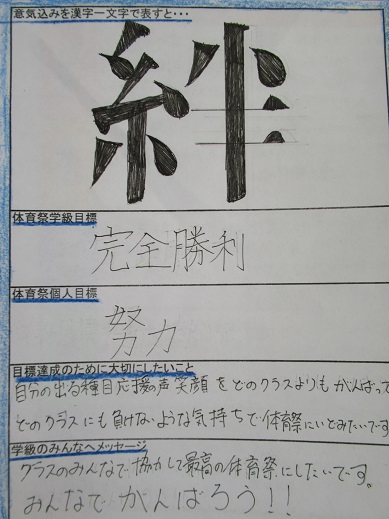 意気込みを漢字一文字で表すと・・・
絆
体育祭学級目標
完全勝利
体育祭個人目標
努力
目標達成のために大切にしたいこと
自分の出る種目応援の声笑顔をどのクラスよりもがんばって
どのクラスにも負けないような気持ちで体育祭にいどみたいです
学級のみんなへメッセージ
クラスのみんなで協力して最高の体育祭にしたいです。
みんなでがんばろう!!